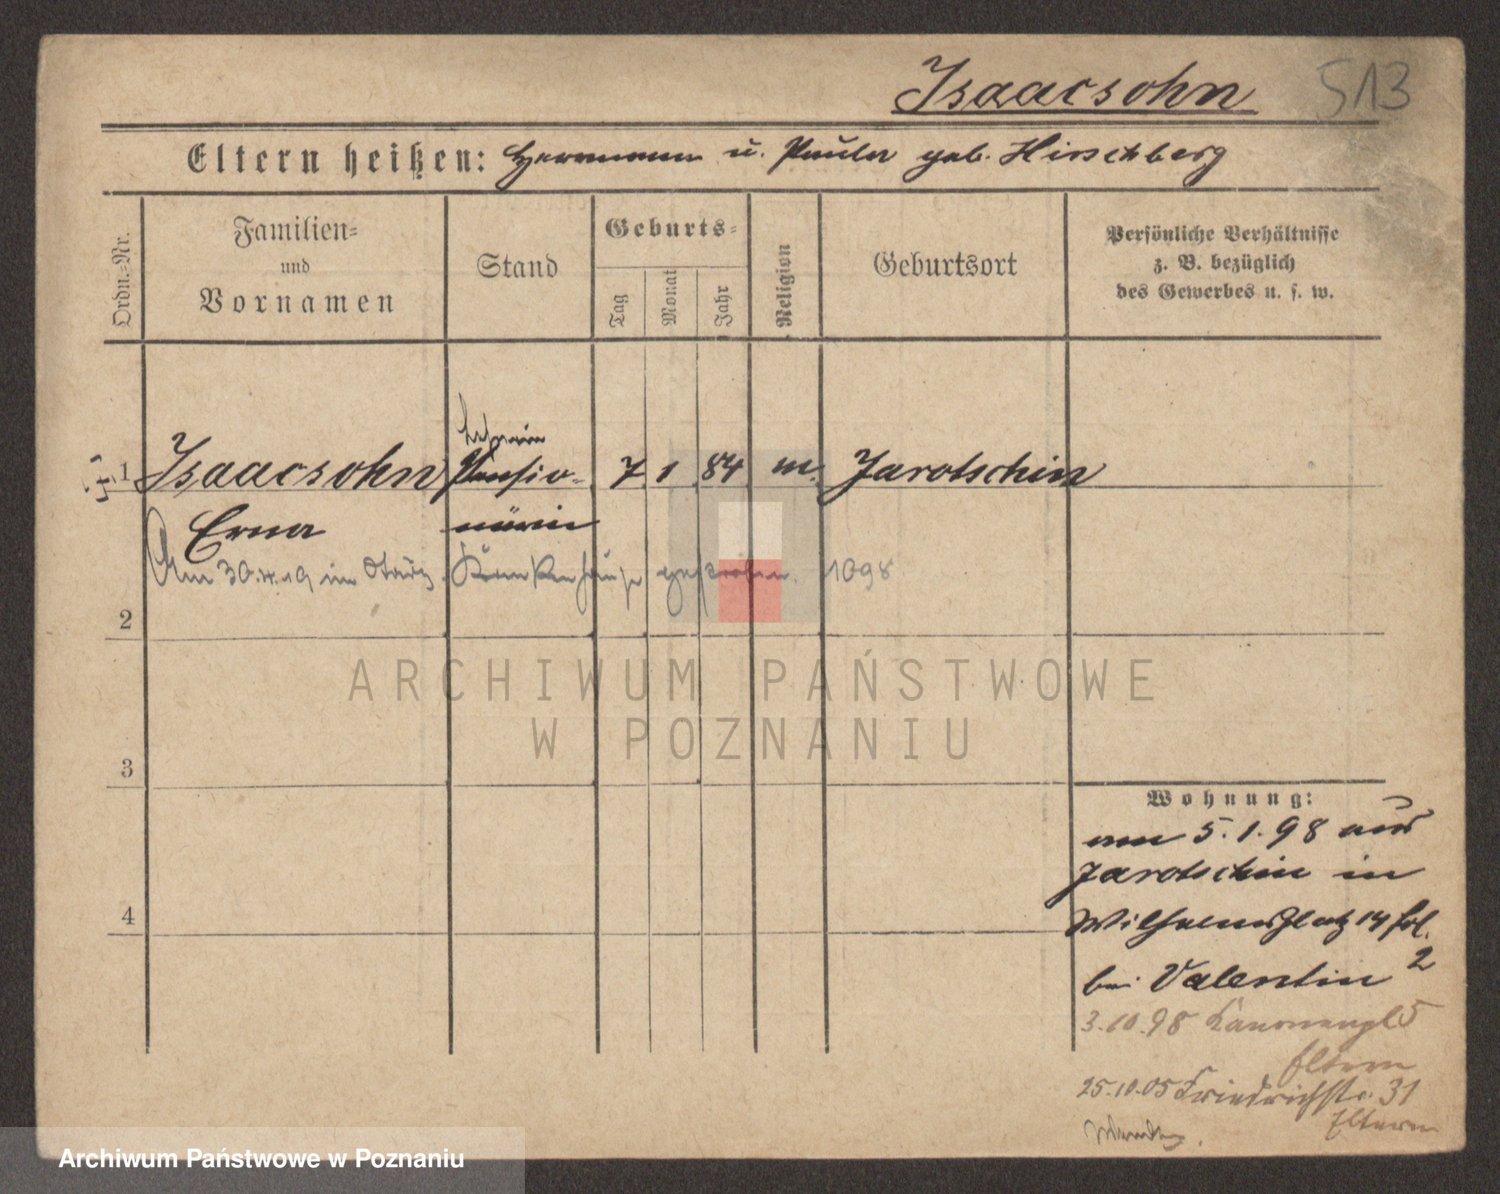 Isaacsohn 513
Eltern heißen: Herrmann u. Paula geb. Hirschberg
Ordn.=Nr.
Familien=
und
Vornamen
Stand
Geburts=
Tag
Monat
Jahr
Religion
Geburtsort
Persönliche Verhältnisse
z. B. bezüglich
des Gewerbes u. s. w.
Lehrerin
1 Isaacsohn Pensio- 7 1 84 m. Jarotschin
Erna närin
Am 30.4.19 im Krankenhause gestorben. 1098
2
3
4
ARCHIWUM PAŃSTWOWE
W POZNANIU
Wohnung:
am 5.1.98 aus
Jarotschin in
Wilhelmsplatz 14
bei Valentin 2
3.10.98 Kanonenpl 5
Eltern
25.10.05 Friedrichstr. 31
Eltern
Archiwum Państwowe w Poznaniu